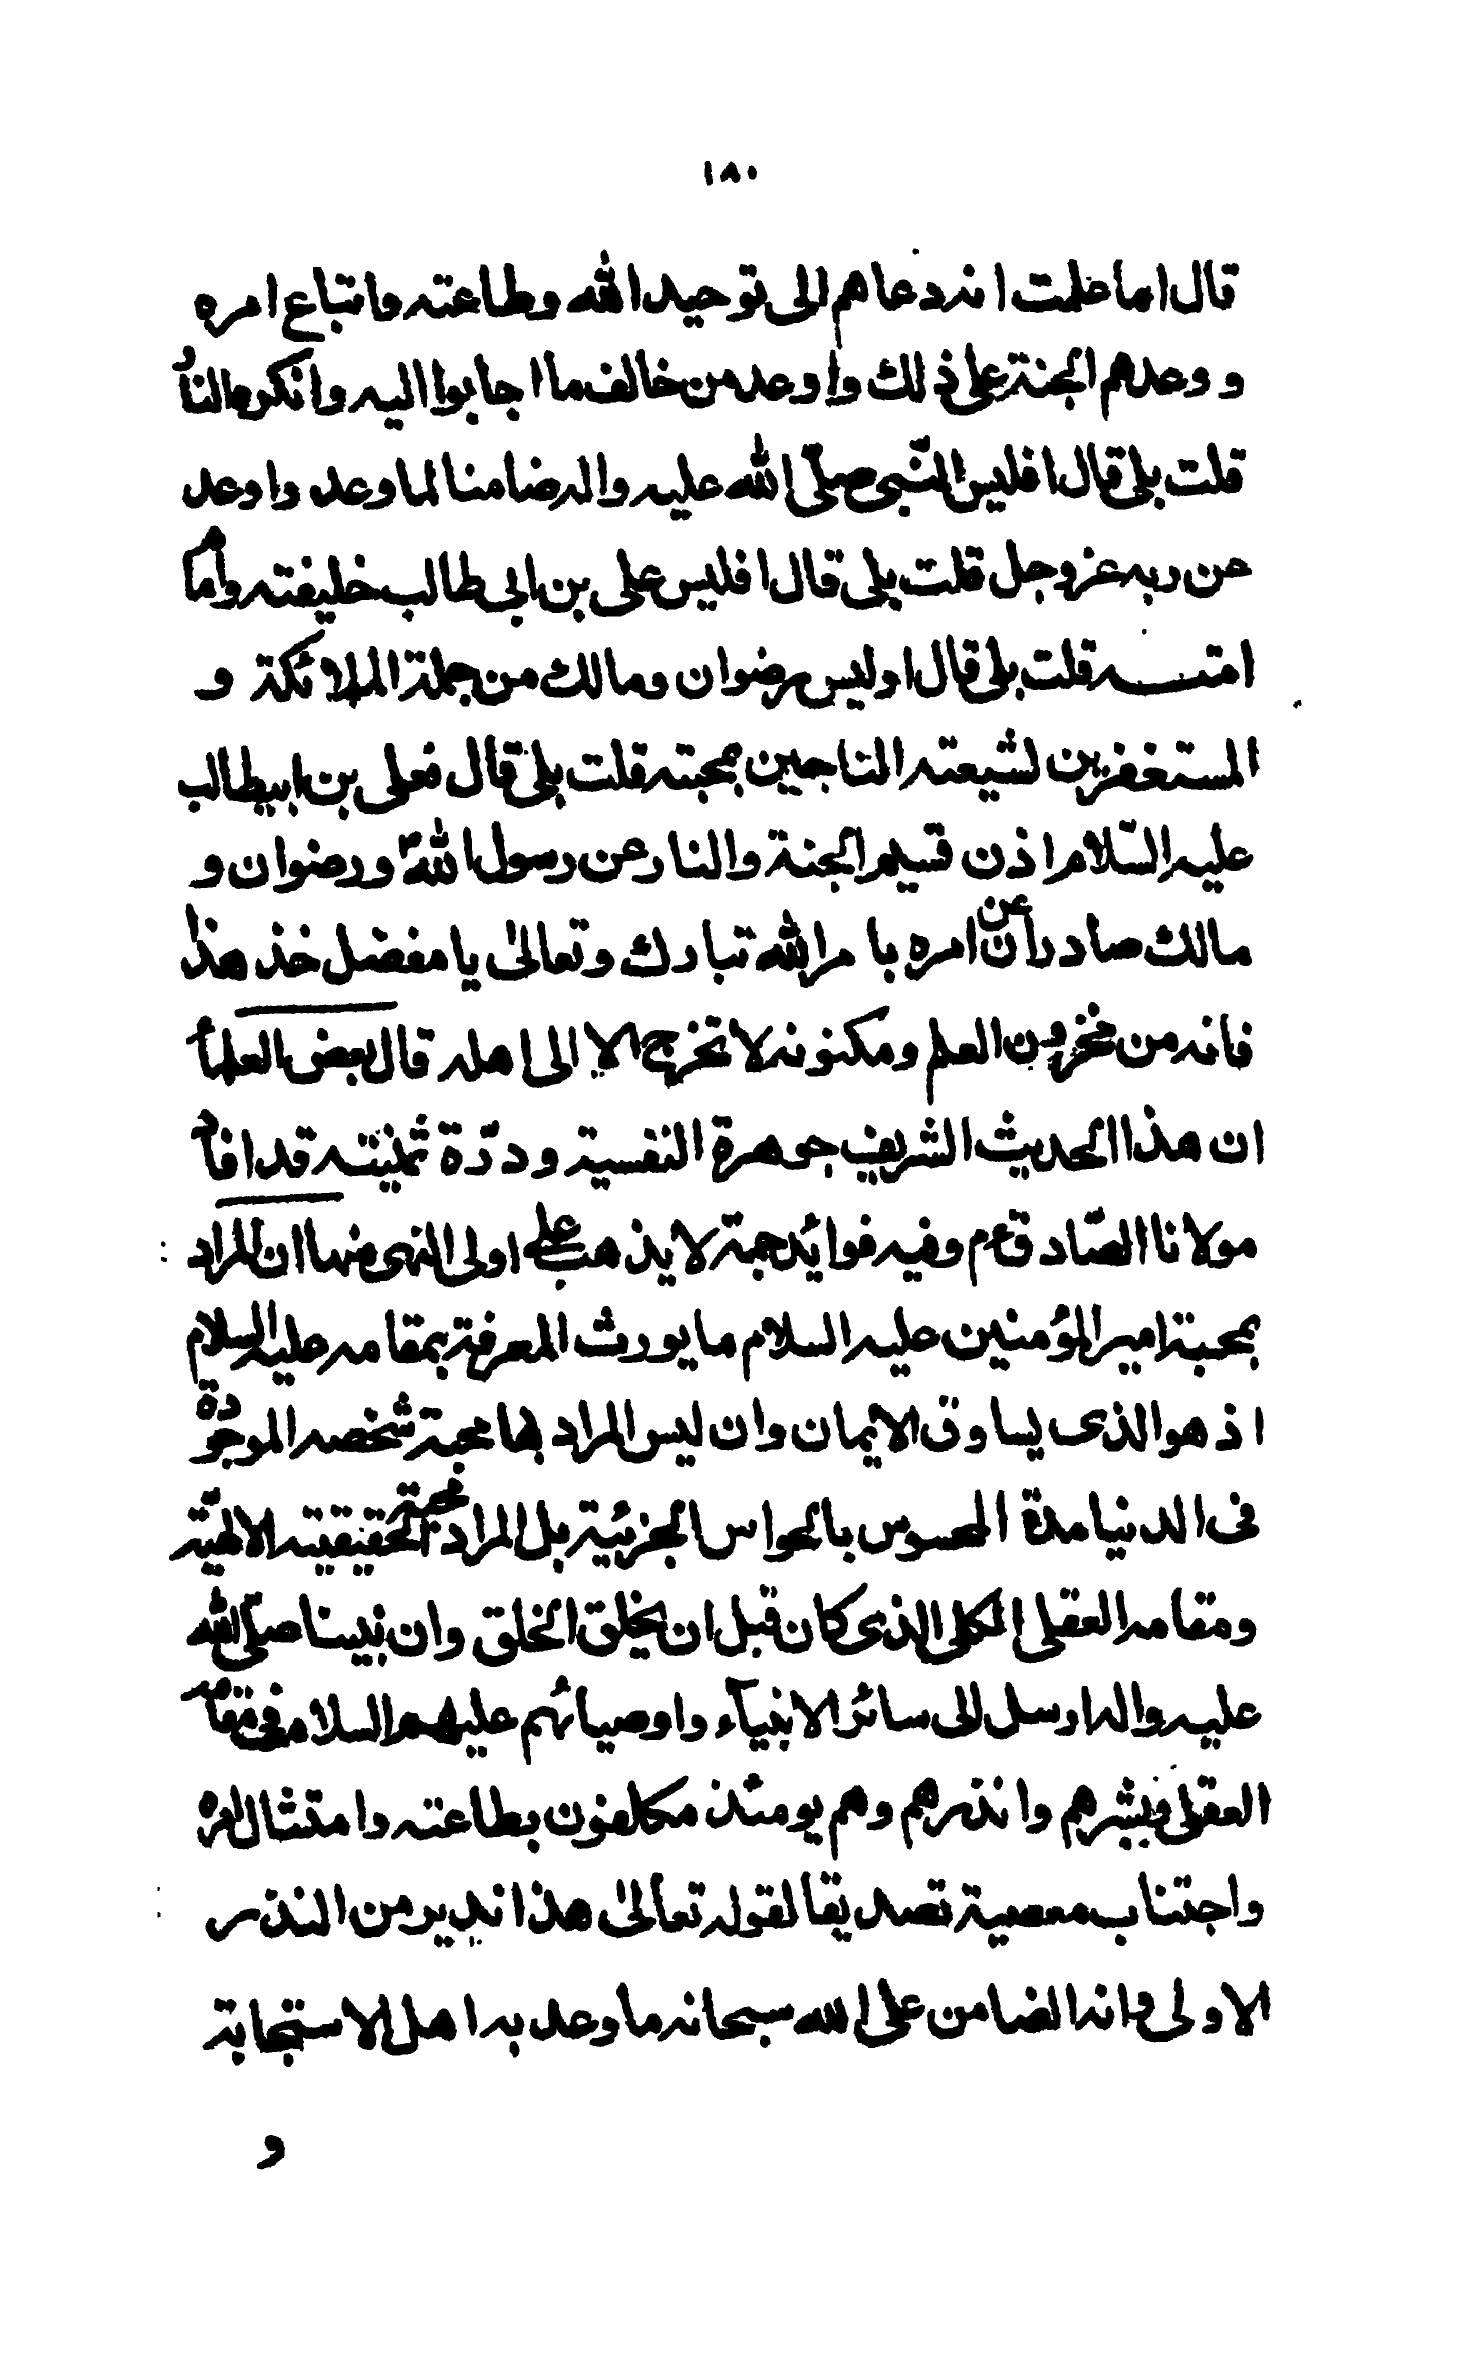 ١٨٠
قال اما علمت انه دعاهم الى توحيد الله وطاعته واتباع امره
ووعدهم الجنة على ذلك واوعد من خالف ما اجابوا اليه وانكره النار
قلت بلى قال افليس النّبى صلّى الله عليه واله ضامنا لما وعد واوعد
عن ربه عز وجل قلت بلى قال افليس على بن ابى طالب خليفته وامام
امته قلت بلى قال اوليس رضوان ومالك من جملة الملائكة و
المستغفرين لشيعته الناجين بمحبته قلت بلى قال فعلى بن ابيطالب
عليه السّلام اذن قسيم الجنة والنار عن رسول الله ص ورضوان و
مالك صادران عن امره بامر الله تبارك وتعالى يا مفضل خذ هذا
فانه من مخزون العلم ومكنونه لا تخرج الا الى اهله قال بعض العلماء
ان هذا الحديث الشريف جوهرة النفسية ودرّة ثمينته قد افاد
مولانا الصّادق ع م وفيه فوائد جمة لا يذهب على اولى النهى منها ان المراد
بمحبة امير المؤمنين عليه السلام ما يورث المعرفة بمقامه عليه السلام
اذ هو الذى يساوق الايمان وان ليس المراد بها محبة شخصه الموجودة
فى الدنيا مدة المحسوس بالحواس الجزئية بل المراد محبة الحقيقيته الالهيّة
ومقامه العقلى الكلى الذى كان قبل ان يخلق الخلق وان نبينا صلّى الله
عليه واله ارسل الى سائر الانبيآء واوصيائهم عليهم السلام فى مقامه
العقلى وبشرهم وانذرهم وهم يومئذ مكلفون بطاعته وامتثال امره
واجتناب معصية تصديقا لقوله تعالى هذا نذير من النذر
الاولى وانه الضامن على الله سبحانه ما وعد به اهل الاستجابة
و